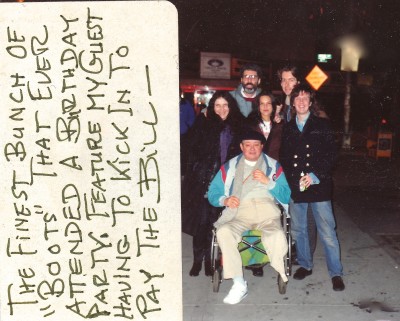 THE FINEST BUNCH OF
"BOOTS" THAT EVER
ATTENDED A BIRTHDAY
PARTY. FEATURE MY GUEST
HAVING TO KICK IN TO
PAY THE BILL—